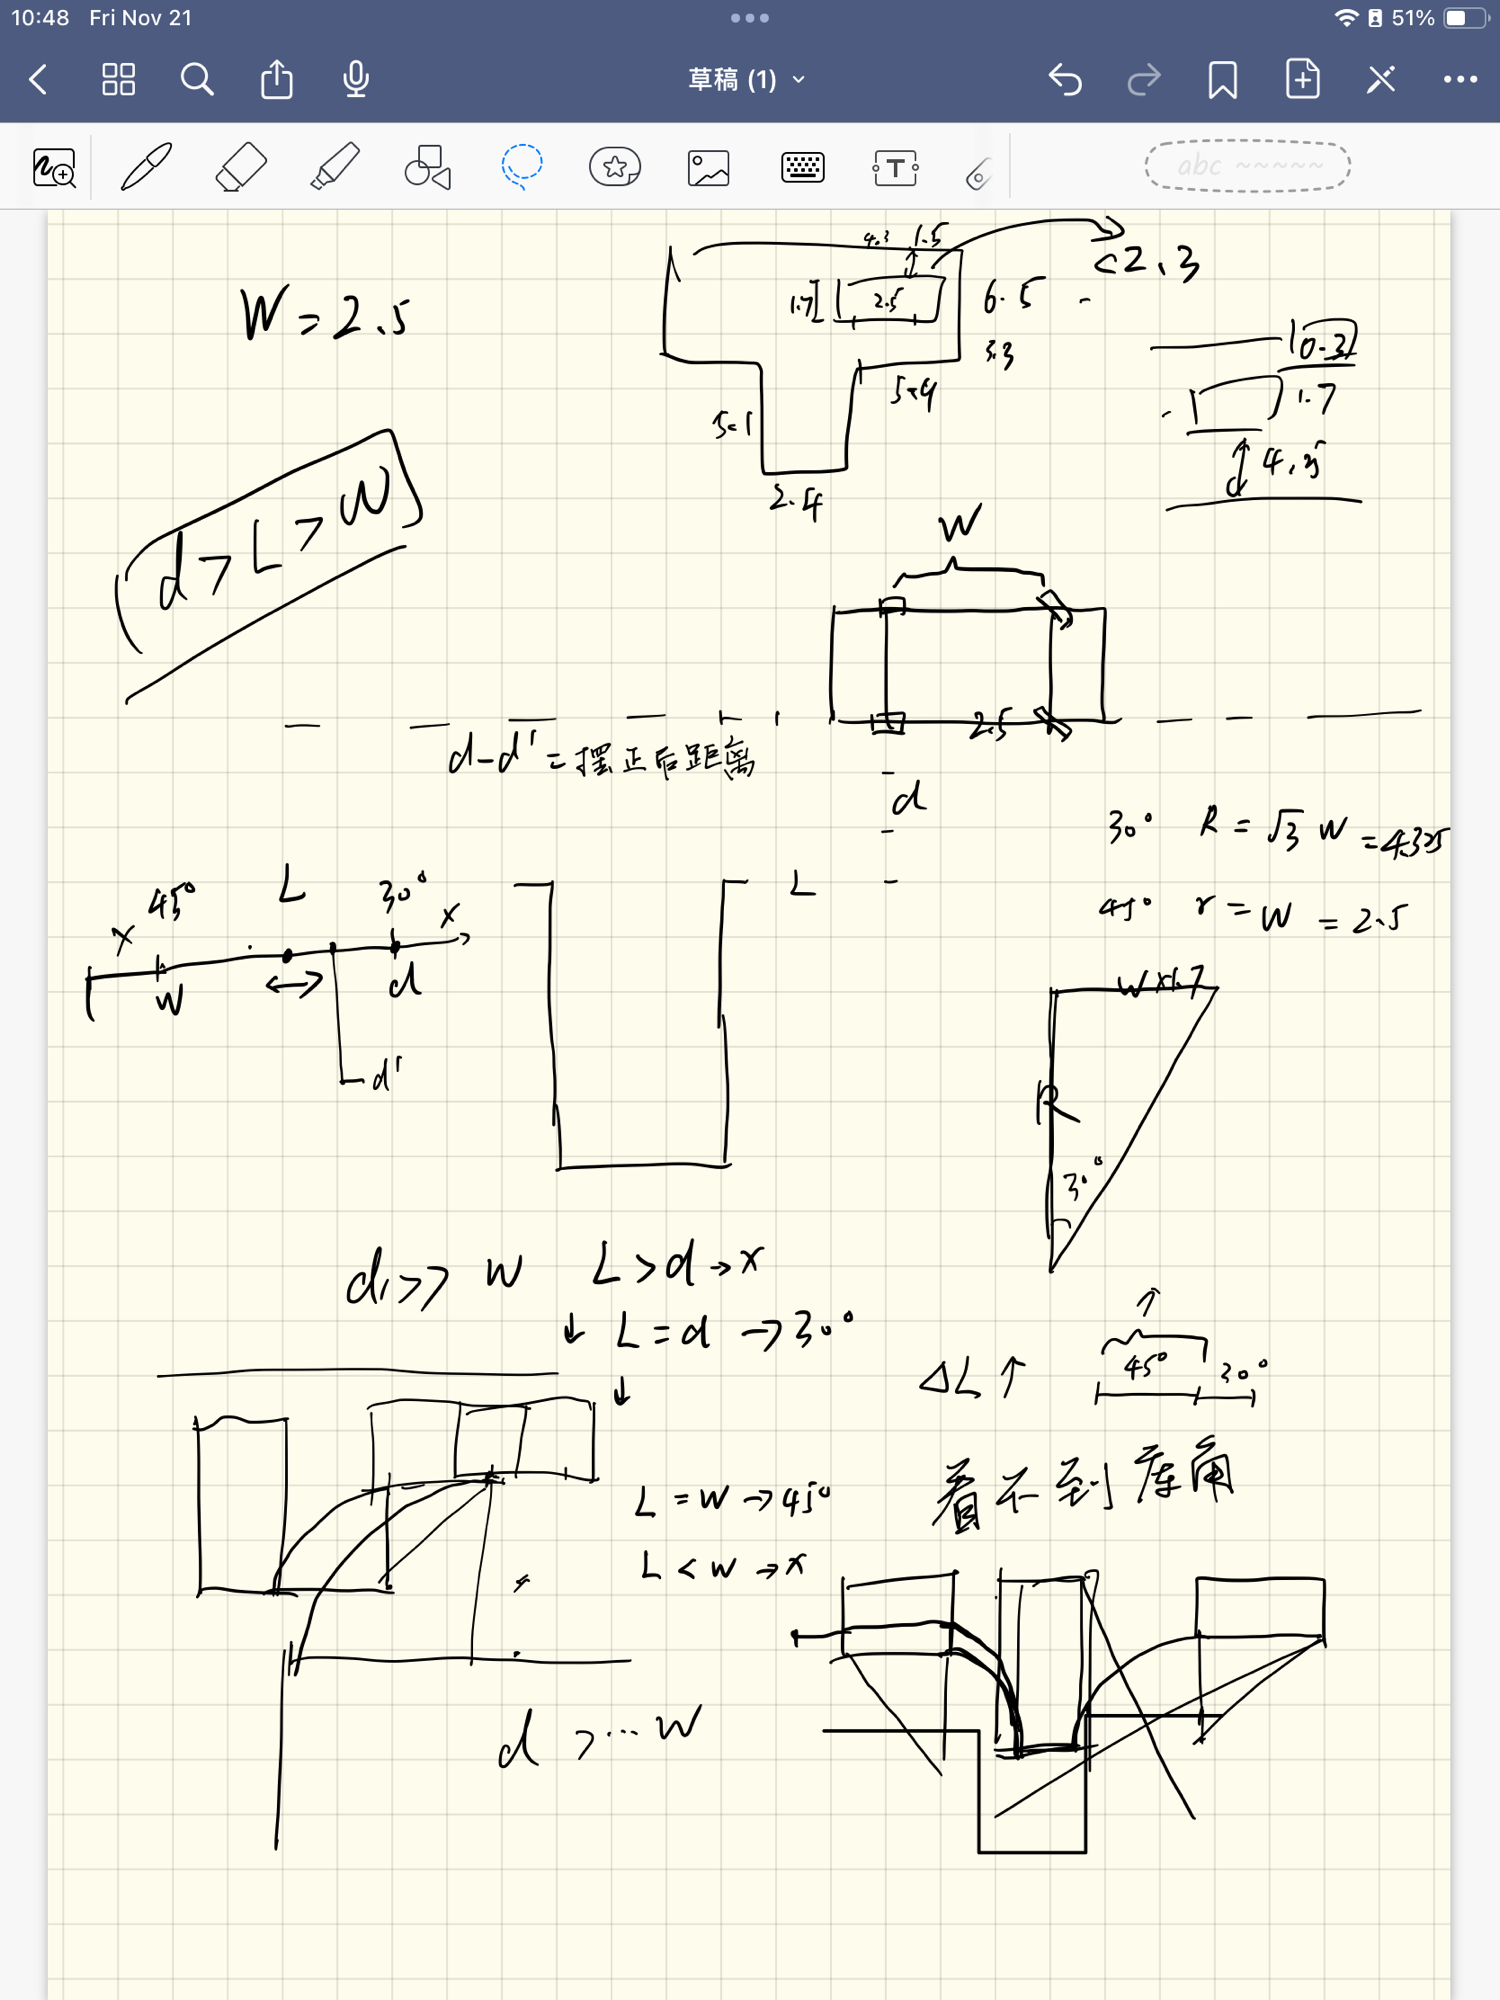 10:48 Fri Nov 21
51%
草稿 (1)
abc
W = 2.5
4.3 1.5
<2.3
1.7
2.5
6.5
3.3
5.4
5.1
2.4
0.3
1.7
4.5
d > L > W
W
2.5
d - d' = 摆正后距离
d
L
30° R = √3 W = 4.325
45° r = W = 2.5
x 45° L 30° x
W d
d'
W×1.7
R
30°
d >> W L > d → x
↓ L = d → 30°
↓
L = W → 45°
L < W → x
ΔL ↑
45° 30°
看不到库角
d > ... W